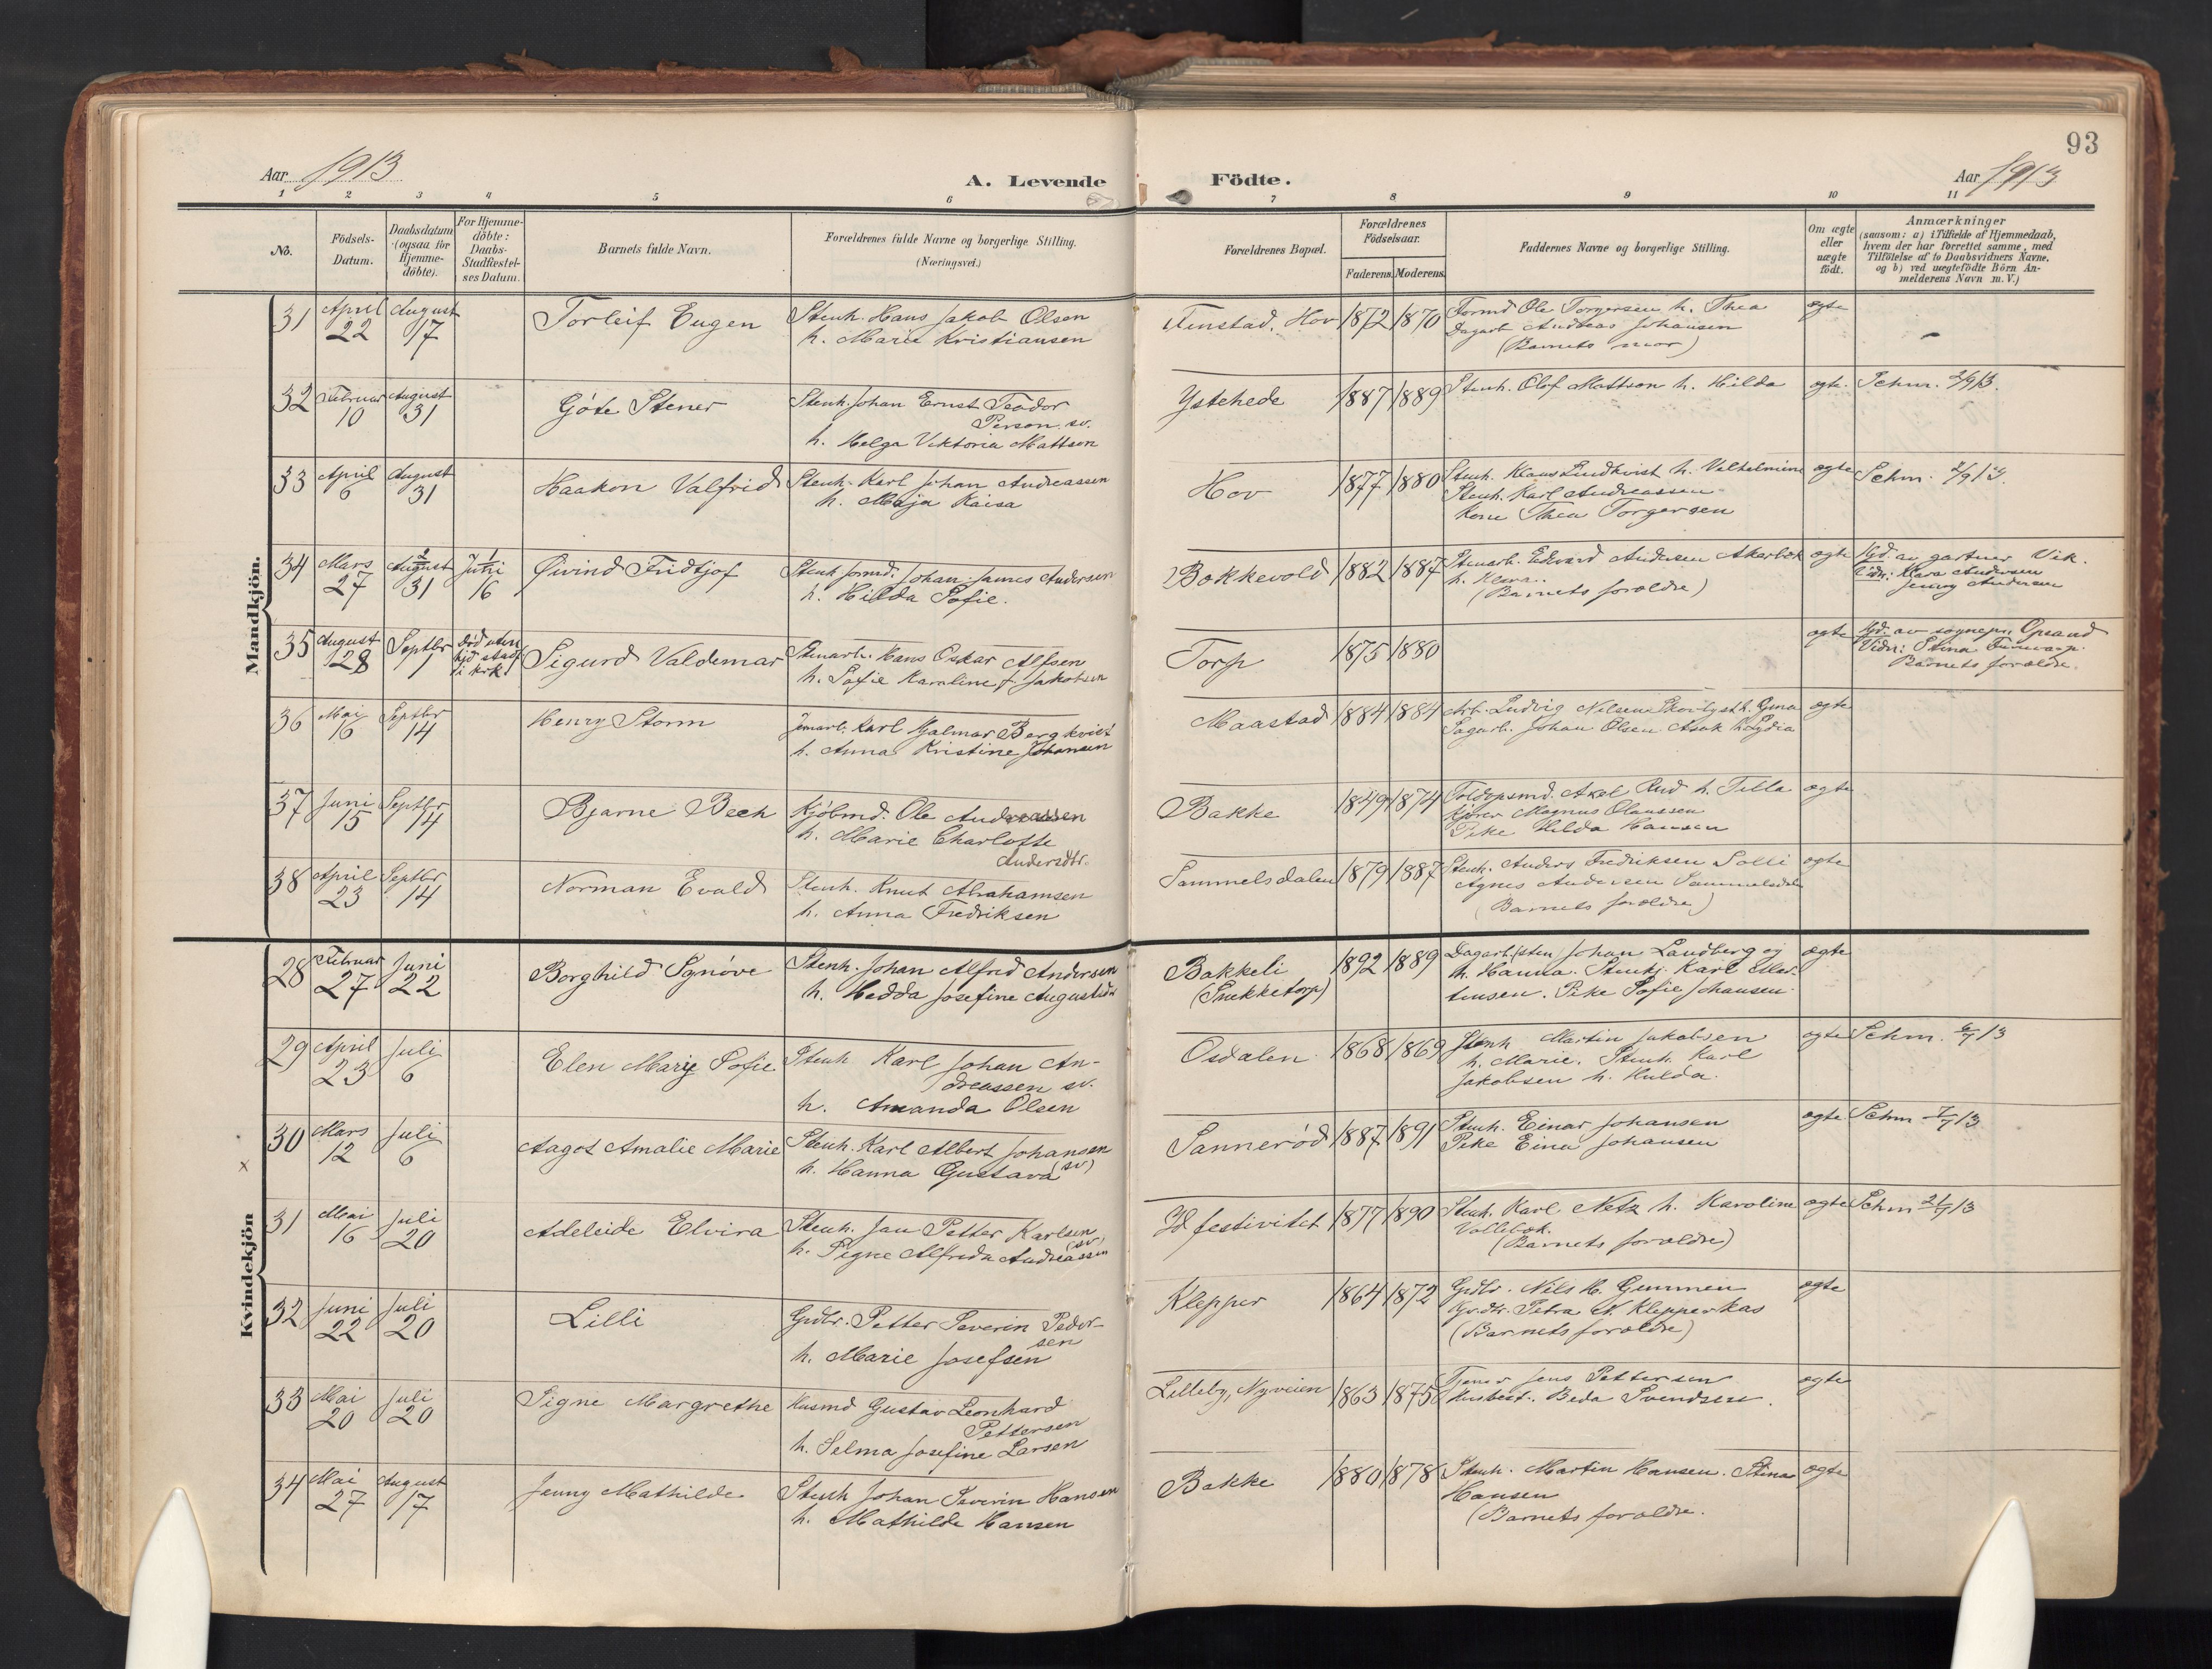 93
Aar 1913
A. Levende Födte.
Aar 1913
1 2 3 4 5 6 7 8 9 10 11
No.
Födsels-Datum.
Daabsdatum (ogsaa for Hjemme-döbte).
For Hjemme-döbte: Daabs-Stadfæstel-ses Datum.
Barnets fulde Navn.
Forældrenes fulde Navne og borgerlige Stilling. (Næringsvei.)
Forældrenes Bopæl.
Forældrenes Födselsaar.
Faderens. Moderens.
Faddernes Navne og borgerlige Stilling.
Om ægte eller uægte födt.
Anmærkninger (saasom: a) i Tilfælde af Hjemmedaab, hvem der har forrettet samme, med Tilföielse af to Daabsvidners Navne, og b) ved uægtefödte Börn An-melderens Navn m. V.)
Mandkjön.
31 April 22 August 17 Torleif Eugen Stenh. Hans Jakob Olsen
h. Marie Kristiansen
Tinstad, Hov 1872 1870 Formd Ole Torgersen h. Thea
Dagarb Andreas Johansen
(Barnets mor)
ægte -
32 Februar 10 August 31 Göte Stener Stenh. Johan Ernst Teodor
Person. sv.
h. Helga Viktoria Mattson
Ystehede 1887 1889 Stenh. Olof Mattson h. Hilda ægte. Schm. 2/9 13.
33 April 6 August 31 Haakon Valfrid Stenh. Karl Johan Andreassen
h. Maja Kaisa
Hov 1877 1880 Stenh. Klaus Lindkvist h. Vilhelmine
Stenh. Karl Andreassen
Kone Thea Torgersen
ægte Schm. 2/9 13.
34 Mars 27 2 August 31 1 Juni 16 Øivind Fridtjof Stenh.formd. Johan James Andersen
h. Hilda Sofie.
Bokkevold 1882 1887 Stenarb. Edvard Andersen Akerbæk
h. Klara.
(Barnets forældre)
ægte Hjd. av gartner Vik.
Vidn: Klara Andersen
Jenny Andersen
35 August 28 Septbr 1 Död uten hjd stadf i kirk Sigurd Valdemar Stenarb. Hans Oskar Alfsen
h. Sofie Karoline f. Jakobsen
Torp 1875 1880 ægte Hjd. av sognepr. Opsand
Vidn: Stina
Barnets forældre.
36 Mai 16 Septbr 14 Henry Storm Karl Hjalmar Bergkvist
h. Anna Kristine Johansen
Maastad 1884 1884 Arb. Ludvig Nilsen h. Gina
Sagarb. Johan Olsen Asak h Lydia
ægte
37 Juni 15 Septbr 14 Bjarne Bech Kjöbmd. Ole Andreassen
h. Marie Charlotte
Andersdtr.
Bakke 1849 1874 Toldopsmd. Axel Rud h. Tilla
Kjörer Magnus Olaussen
Pike Hilda Hansen
ægte
38 April 23 Septbr 14 Norman Evald Stenh. Knut Abrahamsen
h. Anna Fredriksen
Sammelsdalen 1879 1887 Stenh. Anders Fredriksen Solli
Agnes Andersen Sammelsdalen
(Barnets forældre)
ægte
Kvindekjön
28 Februar 27 Juni 22 Borghild Synöve Stenh. Johan Alfred Andersen
h. Hedda Josefine Augustsdtr
Bakkeli
(Snekketorp)
1892 1889 Dagarb. (sten) Johan Landberg og
h. Hanna. Stenhj. Karl Eller-
tinsen. Pike Sofie Johansen.
ægte
29 April 23 Juli 6 Elen Marie Sofie Stenh. Karl Johan An-
dreassen sv.
h. Amanda Olsen
Osdalen 1868 1869 Stenh Martin Jakobsen
h. Marie. Stenh. Karl
Jakobsen h. Hulda.
ægte Schm. 6/7 13
x 30 Mars 12 Juli 6 Aagot Amalie Marie Stenh. Karl Albert Johansen
h. Hanna Gustava (sv)
Sannerød 1887 1891 Stenh. Einar Johansen
Pike Eina Johansen
ægte Schm 7/7 13
31 Mai 16 Juli 20 Adeleide Elvira Stenh. Jan Petter Karlsen
(sv)
h. Signe Alfrida Andreassen
Id festivitet 1877 1890 Stenh. Karl Netz h. Karoline
Vollebæk.
(Barnets forældre)
ægte Schm 21/7 13
32 Juni 22 Juli 20 Lilli Grdbr. Petter Severin Peder-
sen
h. Marie Josefsen
Klepper 1864 1872 Grdbr. Nils H. Gimmen
Grdbr. Petra N. Klepperkas
(Barnets forældre)
ægte
33 Mai 20 Juli 20 Signe Margrethe Husmd Gustav Leonhard
Pettersen
h. Selma Josefine Larsen
Lilleby, Nyveien 1863 1875 Tjener Jens Pettersen
Husbest. Beda Svendsen.
ægte
34 Mai 27 August 17 Jenny Mathilde Stenh Johan Severin Hansen
h. Mathilde Hansen
Bakke 1880 1878 Stenh. Martin Hansen. Stina
Hansen
(Barnets forældre.
ægte